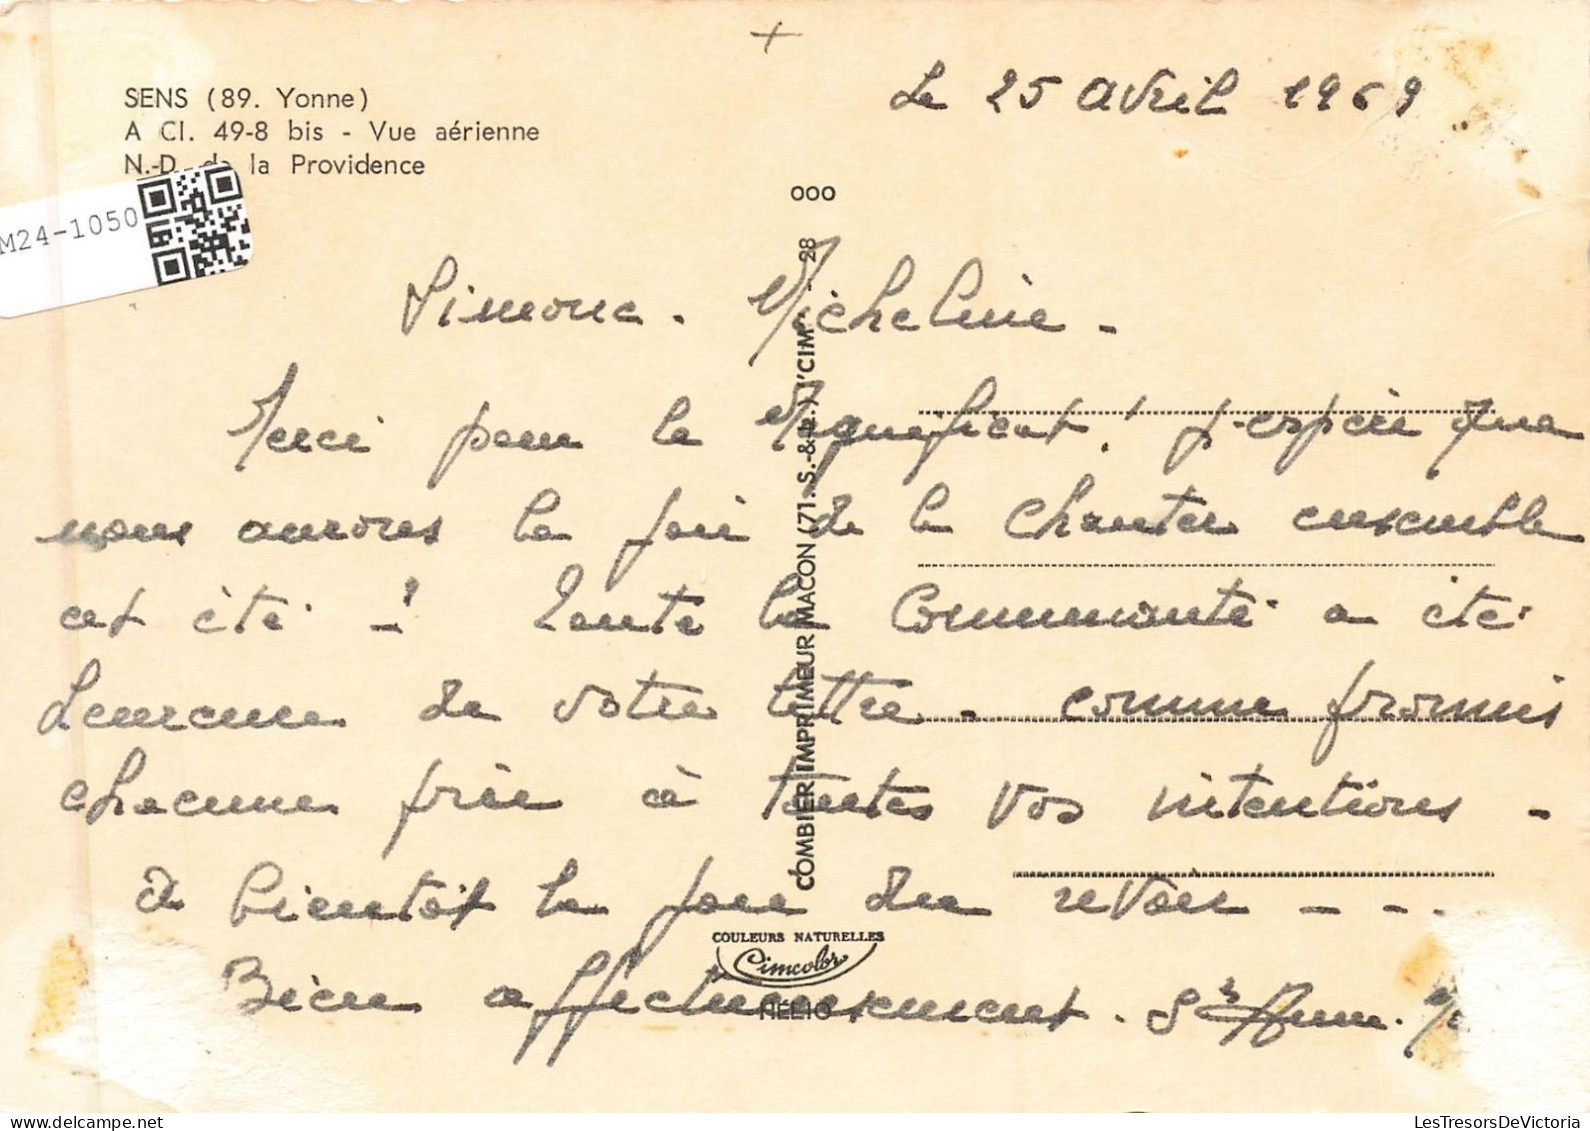 SENS (89. Yonne)
A Cl. 49-8 bis - Vue aérienne
N.-D. de la Providence
M24-1050
Le 25 avril 1969
OOO
COMBIER IMPRIMEUR MACON (71. S.-&-L.) "CIM" - 28
Simone. Micheline -
Merci pour le Magnificat! J'espère que
nous aurons la joie de le chanter ensemble
cet été -! Toute la Communauté a été
heureuse de votre lettre - comme promis
chacune prie à toutes vos intentions -
à bientôt la joie du revoir - - -
Bien affectueusement. Sr Anne.
COULEURS NATURELLES
Cimcolor
HELIO
LesTresorsDeVictoria